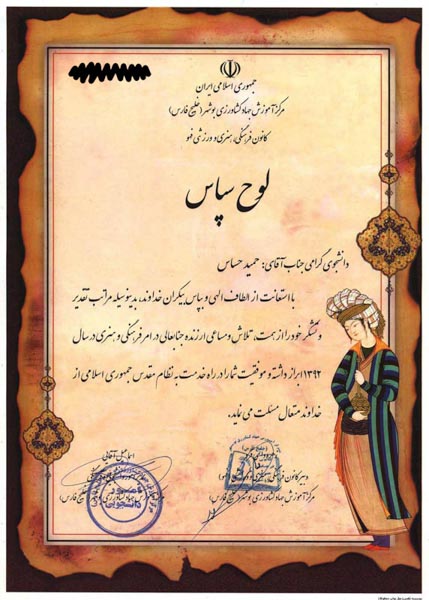 جمهوری اسلامی ایران
مرکز آموزش جهاد کشاورزی بوشهر (خلیج فارس)
کانون فرهنگی، هنری و ورزشی فهو
لوح سپاس
دانشجوی گرامی جناب آقای: حمید حساس
با استعانت از الطاف الهی و سپاس بیکران خداوند، بدینوسیله مراتب تقدیر
و تشکر خود را از همت، تلاش و مساعی ارزنده جنابعالی در امر فرهنگی و هنری در سال
۱۳۹۲ ابراز داشته و موفقیت شما را در راه خدمت به نظام مقدس جمهوری اسلامی از
خداوند متعال مسئلت می نماید.
اسماعیل آقائی
دبیر کانون فرهنگی
مرکز آموزش جهاد کشاورزی بوشهر (خلیج فارس)